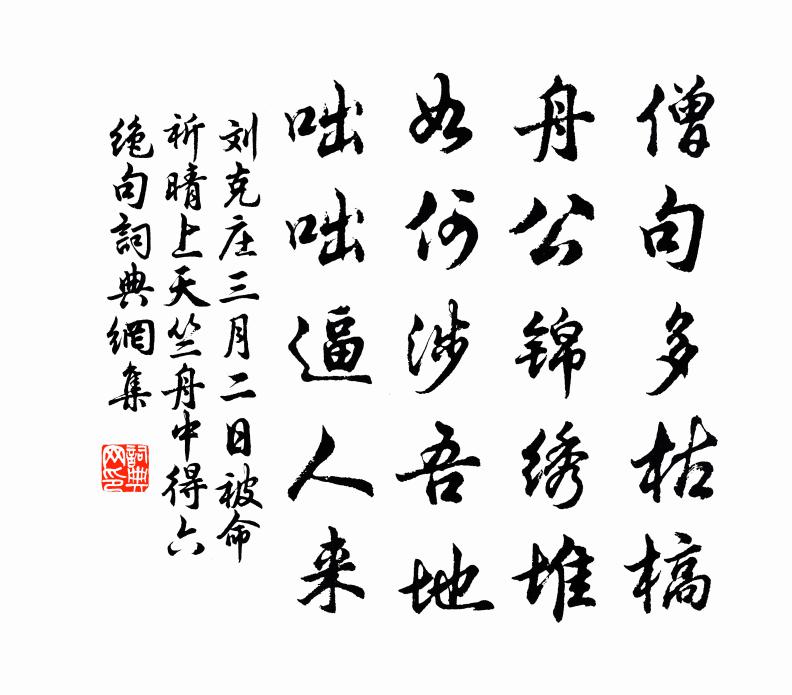 僧句多枯槁
舟公锦绣堆
如何涉吾地
咄咄逼人来
刘克庄三月二日被命
祈晴上天竺舟中得六
绝句詞典網集
詞典网印